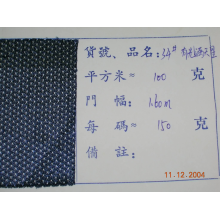 貨號、品名：34#
平方米≈ 100 克
門 幅：1.60m
每 碼≈ 150 克
備 註：
11.12.2004